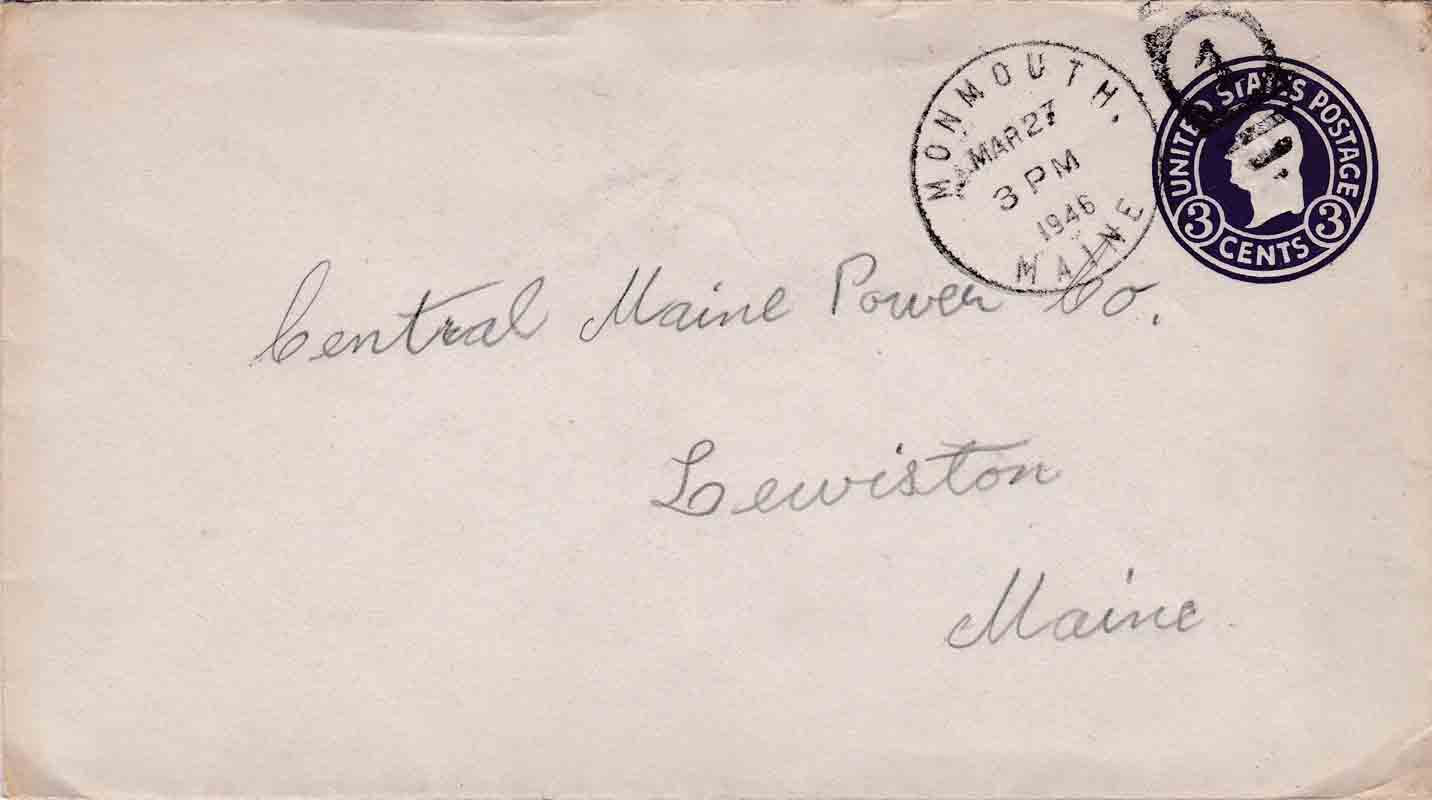 MONMOUTH,
MAR 27
3 PM
1946
MAINE
UNITED STATES POSTAGE
3 CENTS 3
Central Maine Power Co.
Lewiston
Maine